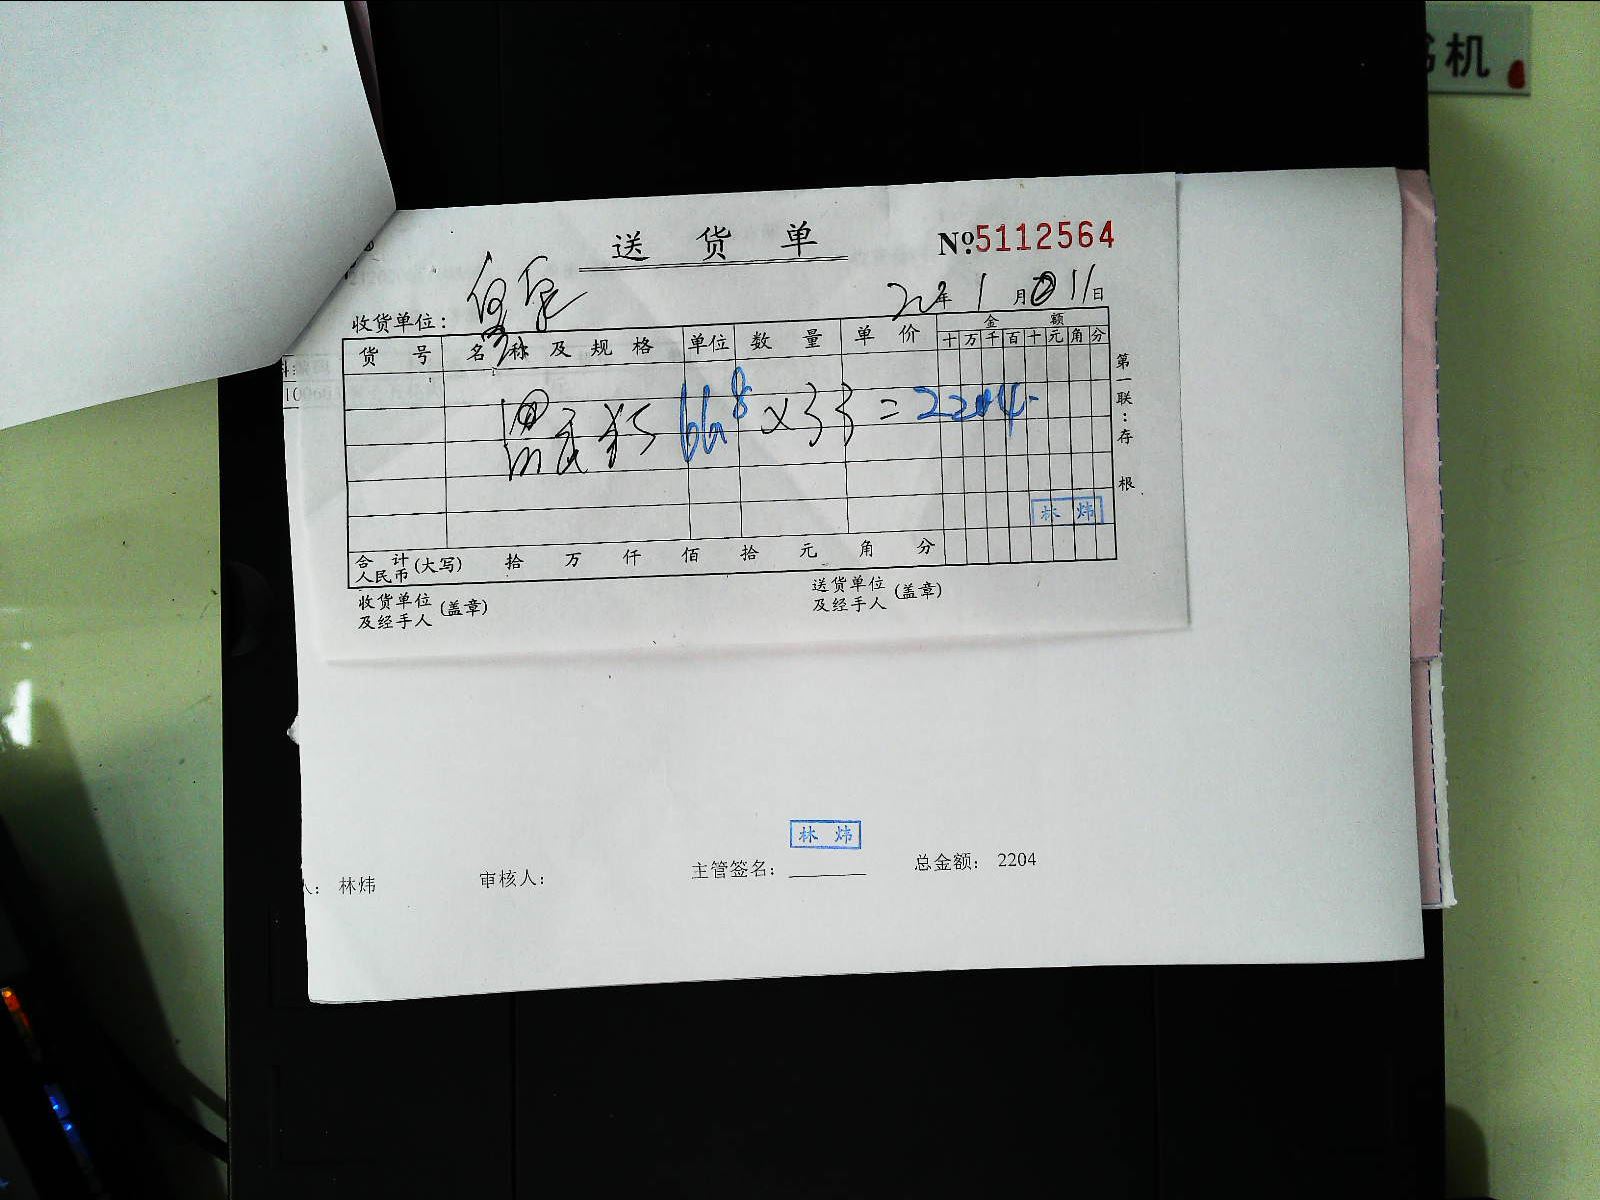 书机
送货单
№5112564
收货单位：
22年1月11日
货号 名称及规格 单位 数量 单价 金额
十万千百十元角分
66.8×33=2204.
第一联：存根
林炜
合计人民币(大写) 拾 万 仟 佰 拾 元 角 分
收货单位及经手人(盖章) 送货单位及经手人(盖章)
林炜
人： 林炜 审核人： 主管签名： 总金额： 2204